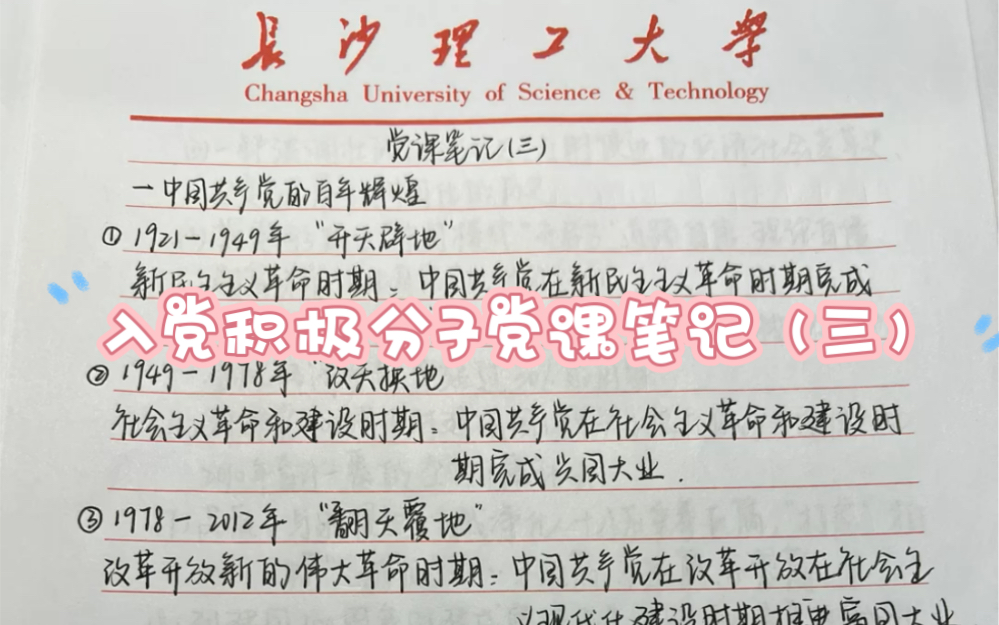 長沙理工大学
Changsha University of Science & Technology
党课笔记(三)
一中国共产党的百年辉煌
① 1921-1949年 "开天辟地"
新民主主义革命时期:中国共产党在新民主主义革命时期完成
入党积极分子党课笔记(三)
② 1949-1978年 "改天换地
社会主义革命和建设时期:中国共产党在社会主义革命和建设时
期完成兴国大业.
③ 1978-2012年 "翻天覆地"
改革开放新的伟大革命时期:中国共产党在改革开放在社会主
义现代化建设时期推要富国大业